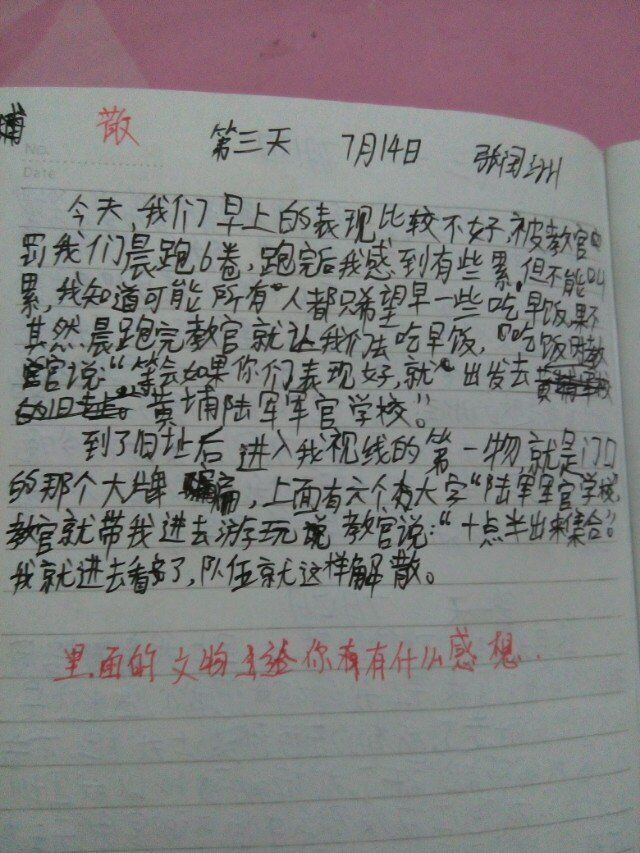 埔 散 第三天 7月14日
No.
Date
今天,我们早上的表现比较不好,被教官
罚我们晨跑6卷,跑完后我感到有些累。但不能叫
累,我知道可能所有人都只希望早一些吃早饭,果不
其然晨跑完教官就让我们去吃早饭,吃饭时教
官说:“等会如果你们表现好,就出发去
黄埔陆军军官学校。”
到了旧址后进入我视线的第一物就是门口
的那个大牌匾,上面有六个大字“陆军军官学校”
教官就带我进去游玩 教官说:“十点半出来集合”
我就进去看了,队伍就这样解散。
里面的文物 给你有什么感想.